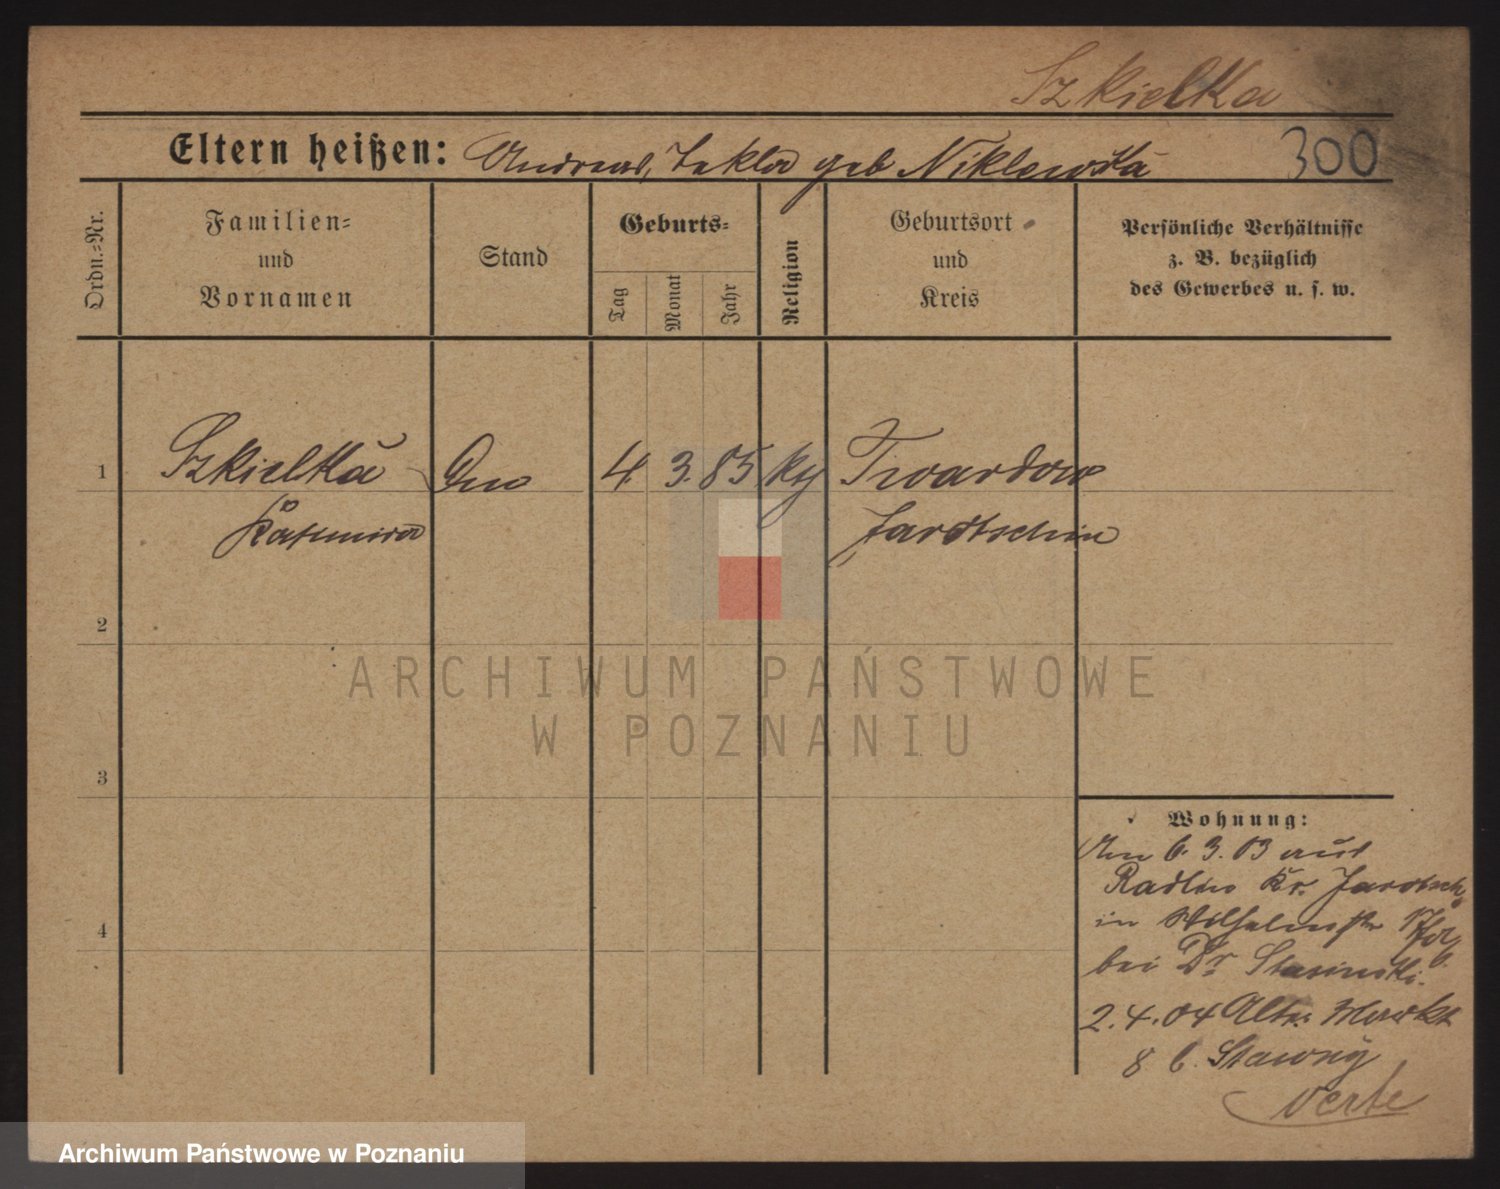 Szkielka
Eltern heißen: Andreas, Tekla geb Niklewska 300
Ordn.=Nr.
Familien=
und
Vornamen
Stand
Geburts=
Tag
Monat
Jahr
Religion
Geburtsort
und
Kreis
Persönliche Verhältnisse
z. B. bezüglich
des Gewerbes u. s. w.
1 Szkielka 4. 3. 85 Twardow
Kasimira Jarotschin
2
3
4
Wohnung:
Am 6. 3. 03 aus
Radlin Kr. Jarotsch
in Wilhelmstr 17
bei Dr Stasinski.
2. 4. 04 Alter Markt
8 b. Stawny
verte
ARCHIWUM PAŃSTWOWE
W POZNANIU
Archiwum Państwowe w Poznaniu